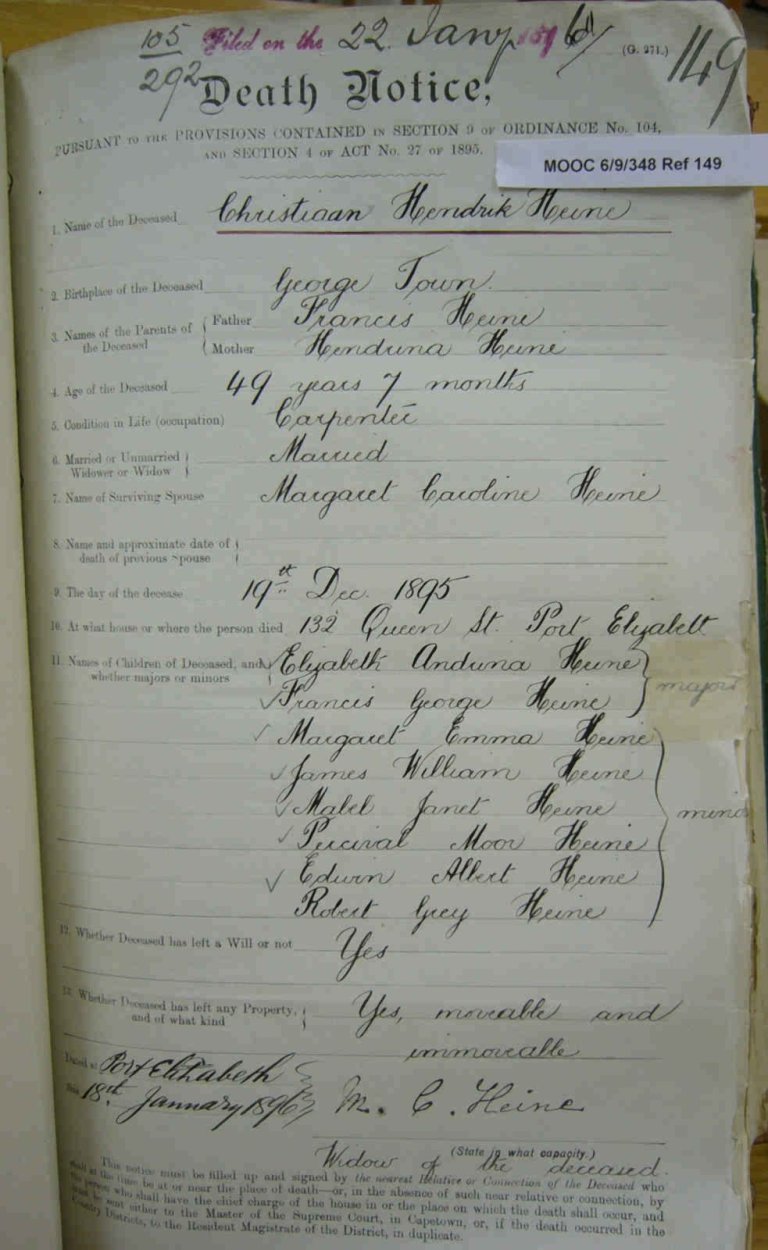 105
292
Filed on the 22. Jany 1896
(G. 271.)
149
Death Notice,
PURSUANT TO THE PROVISIONS CONTAINED IN SECTION 9 OF ORDINANCE No. 104,
AND SECTION 4 OF ACT No. 27 OF 1895.
MOOC 6/9/348 Ref 149
1. Name of the Deceased Christiaan Hendrik Heine
2. Birthplace of the Deceased George Town.
3. Names of the Parents of the Deceased { Father Francis Heine
Mother Hendrina Heine
4. Age of the Deceased 49 years 7 months
5. Condition in Life (occupation) Carpenter
6. Married or Unmarried Widower or Widow } Married
7. Name of Surviving Spouse Margaret Caroline Heine
8. Name and approximate date of death of previous spouse
9. The day of the decease 19th Dec. 1895
10. At what house or where the person died 132 Queen St. Port Elizabeth
11. Names of Children of Deceased, and whether majors or minors
Elizabeth Andrina Heine
Francis George Heine } majors
Margaret Emma Heine
James William Heine
Mabel Janet Heine } mino
Percival Moor Heine
Edwin Albert Heine
Robert Grey Heine
12. Whether Deceased has left a Will or not Yes
13. Whether Deceased has left any Property, and of what kind } Yes, moveable and
immoveable
Dated at Port Elizabeth
this 18th January 1896 M. C. Heine
(State in what capacity.)
Widow of the deceased.
This notice must be filled up and signed by the nearest Relative or Connection of the Deceased who
shall at the time be at or near the place of death—or, in the absence of such near relative or connection, by
the person who shall have the chief charge of the house in or the place on which the death shall occur, and
must be sent either to the Master of the Supreme Court, in Capetown, or, if the death occurred in the
Country Districts, to the Resident Magistrate of the District, in duplicate.